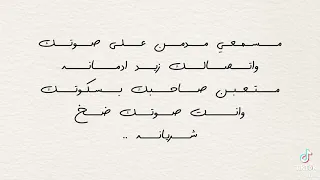 مسمعي مدمن على صوتك
واتصالك زيد ادمانه
متعبن صاحبك بسكوتك
وانت صوتك ضخ
شريانه ..